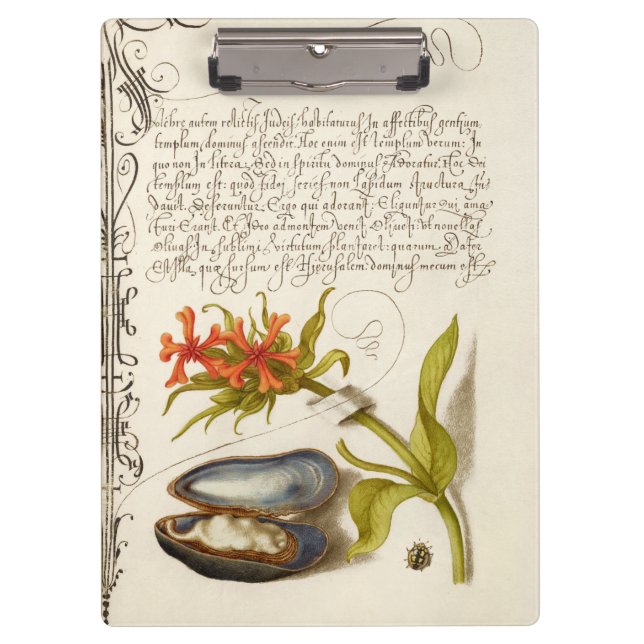 autem relictis Judeis, habitaturus In affectibus gentium
templum dominus ascendit. Hoc enim est templum verum: In
quo non In litera, Sed in spiritu dominus Adoratur. Hoc Dei
templum est: quod fidej series non Lapidum structura fun-
davit. Deseruntur Ergo qui adorant: Eliguntur qui ama
turi Erant. Et Ideo ad montem venit Oliueti: vt nouellas
Oliuas In sublimi virtutum plantaret: quarum Mater
Est Illa, quæ sursum est Hjerusalem: dominus mecum est